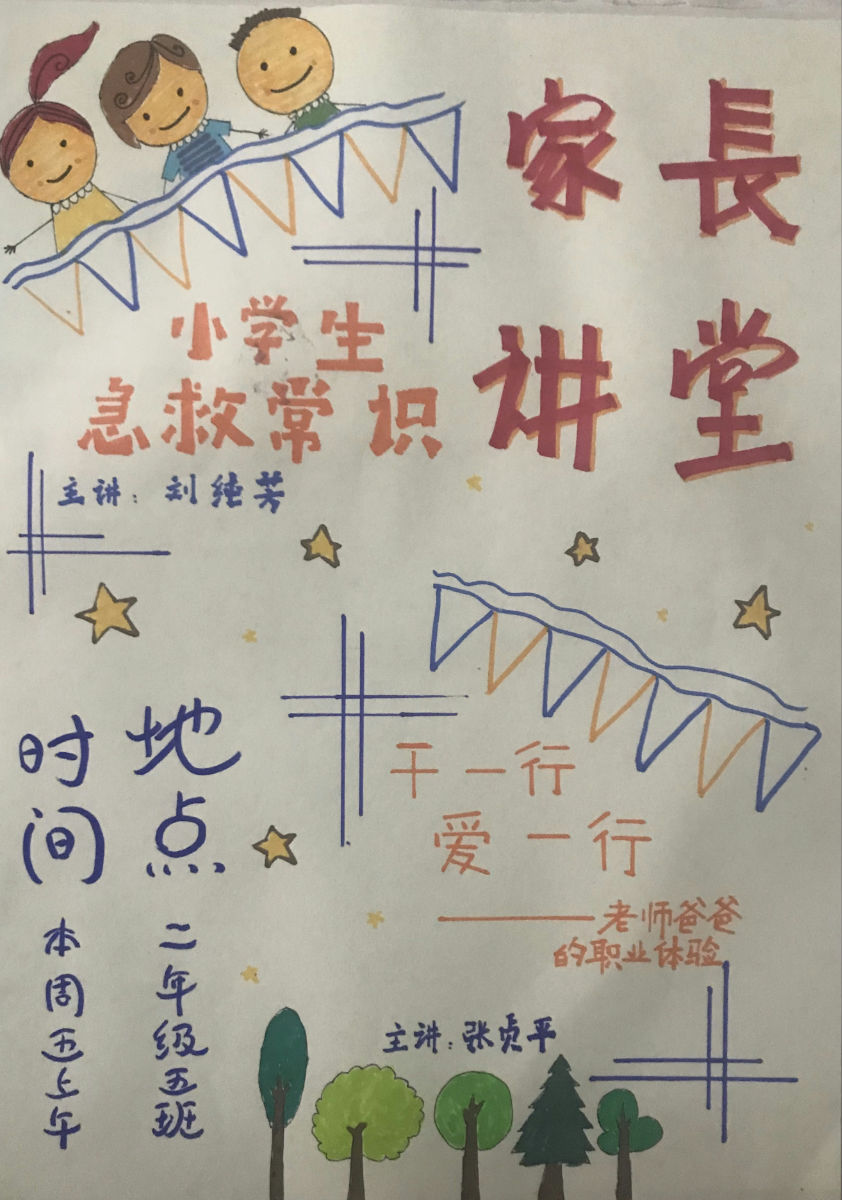 家長
讲堂
小学生
急救常识
主讲：刘纯芳
干一行
爱一行
——老师爸爸
的职业体验
主讲：张贞平
时间
本周五上午
地点
二年级五班